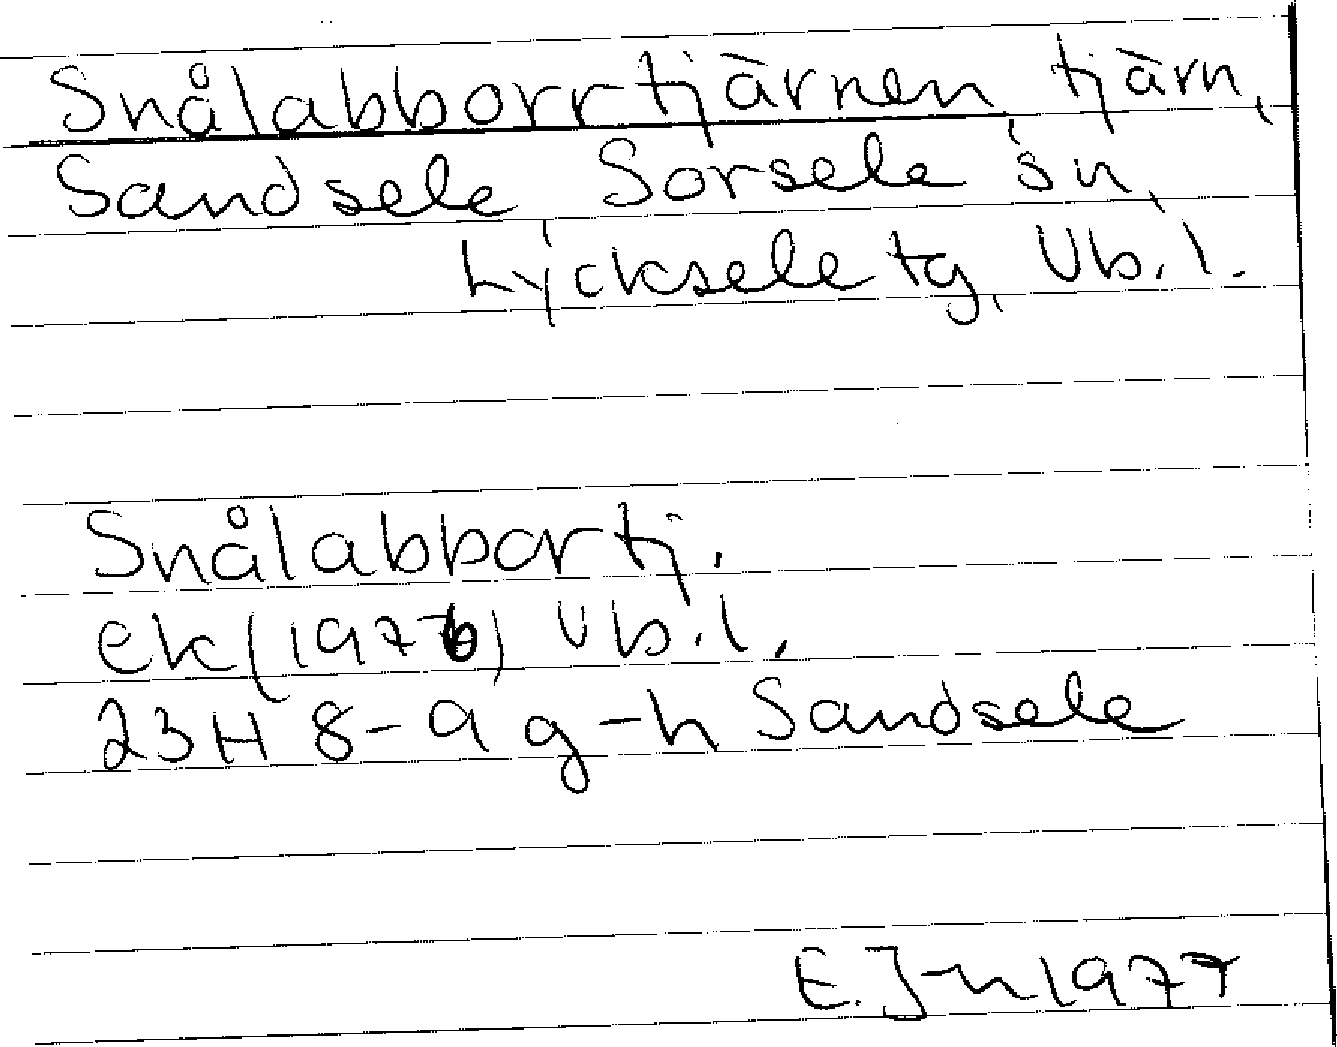 Snålabborrtjärnen, tjärn,
Sandsele, Sorsele sn,
Lycksele tg, Vb. l.
Snålabbortj.
ek (1976) Vb. l.
23H 8-9 g-h Sandsele
E. J-n 1977